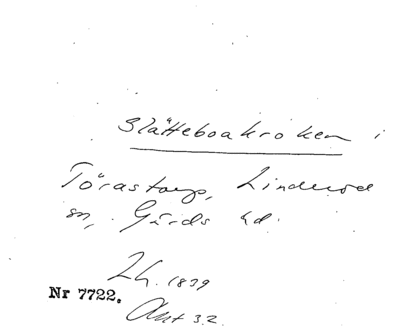 Slätteboakroken i
Törastorp, Linderöd
sn, Gärds hd.
Lh. 1839
Nr 7722.
Akt 32.